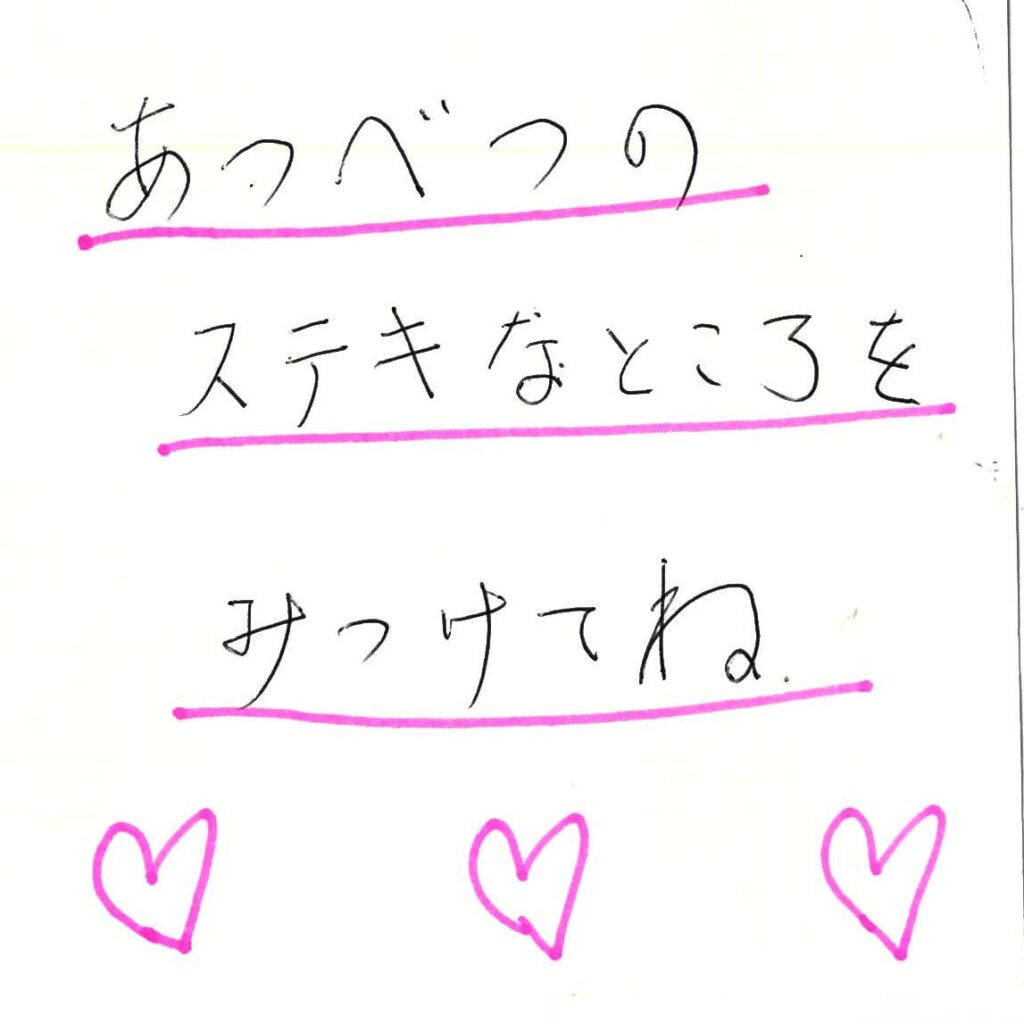 あつべつの
ステキなところを
みつけてね.